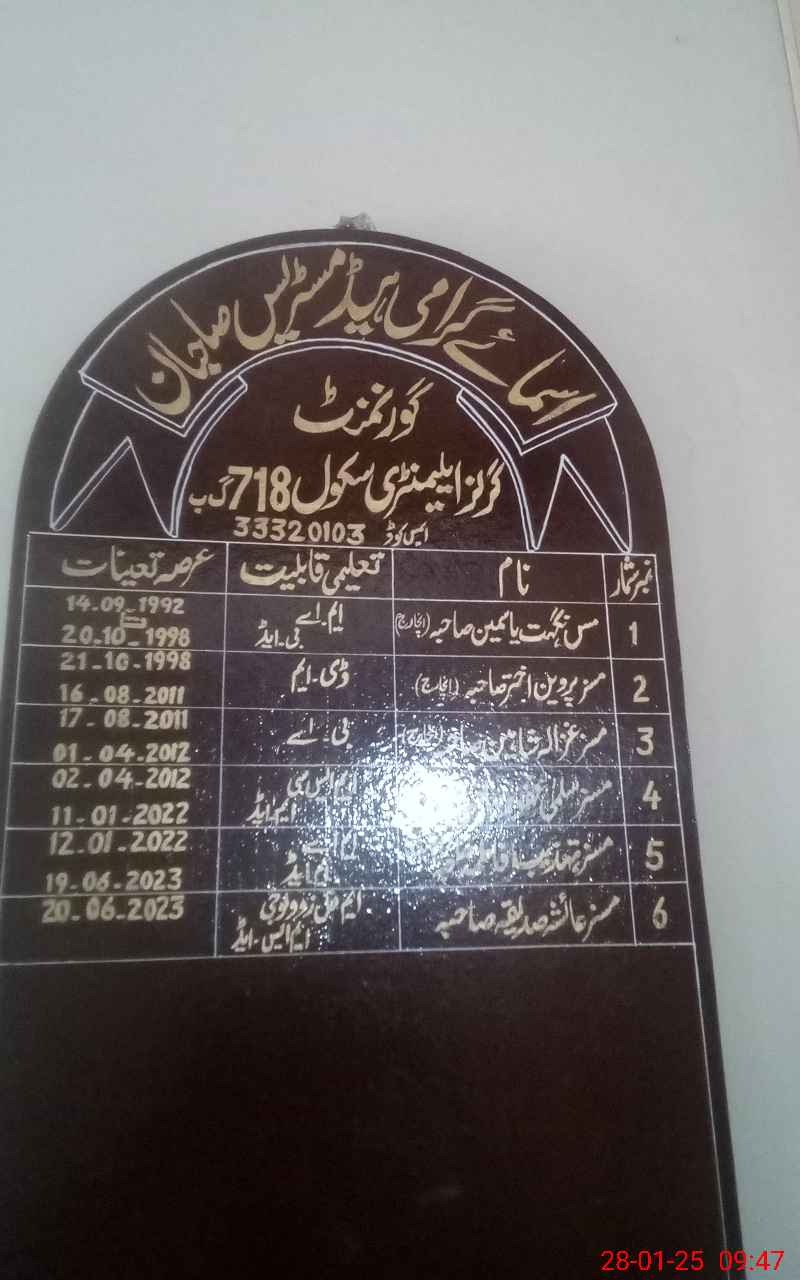 اسمائے گرامی ہیڈ مسٹریس صاحبان
گورنمنٹ
گرلز ایلیمنٹری سکول 718 گ ب
ایس کوڈ 33320103
نمبر شمار نام تعلیمی قابلیت عرصہ تعینات
1 مس نگہت یاسمین صاحبہ (انچارج) ایم۔اے بی۔ایڈ 14-09-1992 تا 20-10-1998
2 مسز پروین اختر صاحبہ (انچارج) وڈی۔ایم 21-10-1998 16-08-2011
3 مسز غزالہ شاہین صاحبہ (انچارج) بی۔اے 17-08-2011 01-04-2012
4 مسز سلمیٰ ایم ایس سی ایم ایڈ 02-04-2012 11-01-2022
5 مسز ایم اے ایم ایڈ 12-01-2022 19-06-2023
6 مسز عائشہ صدیقہ صاحبہ ایم فل زوولوجی ایم ایس۔ایڈ 20-06-2023
28-01-25 09:47